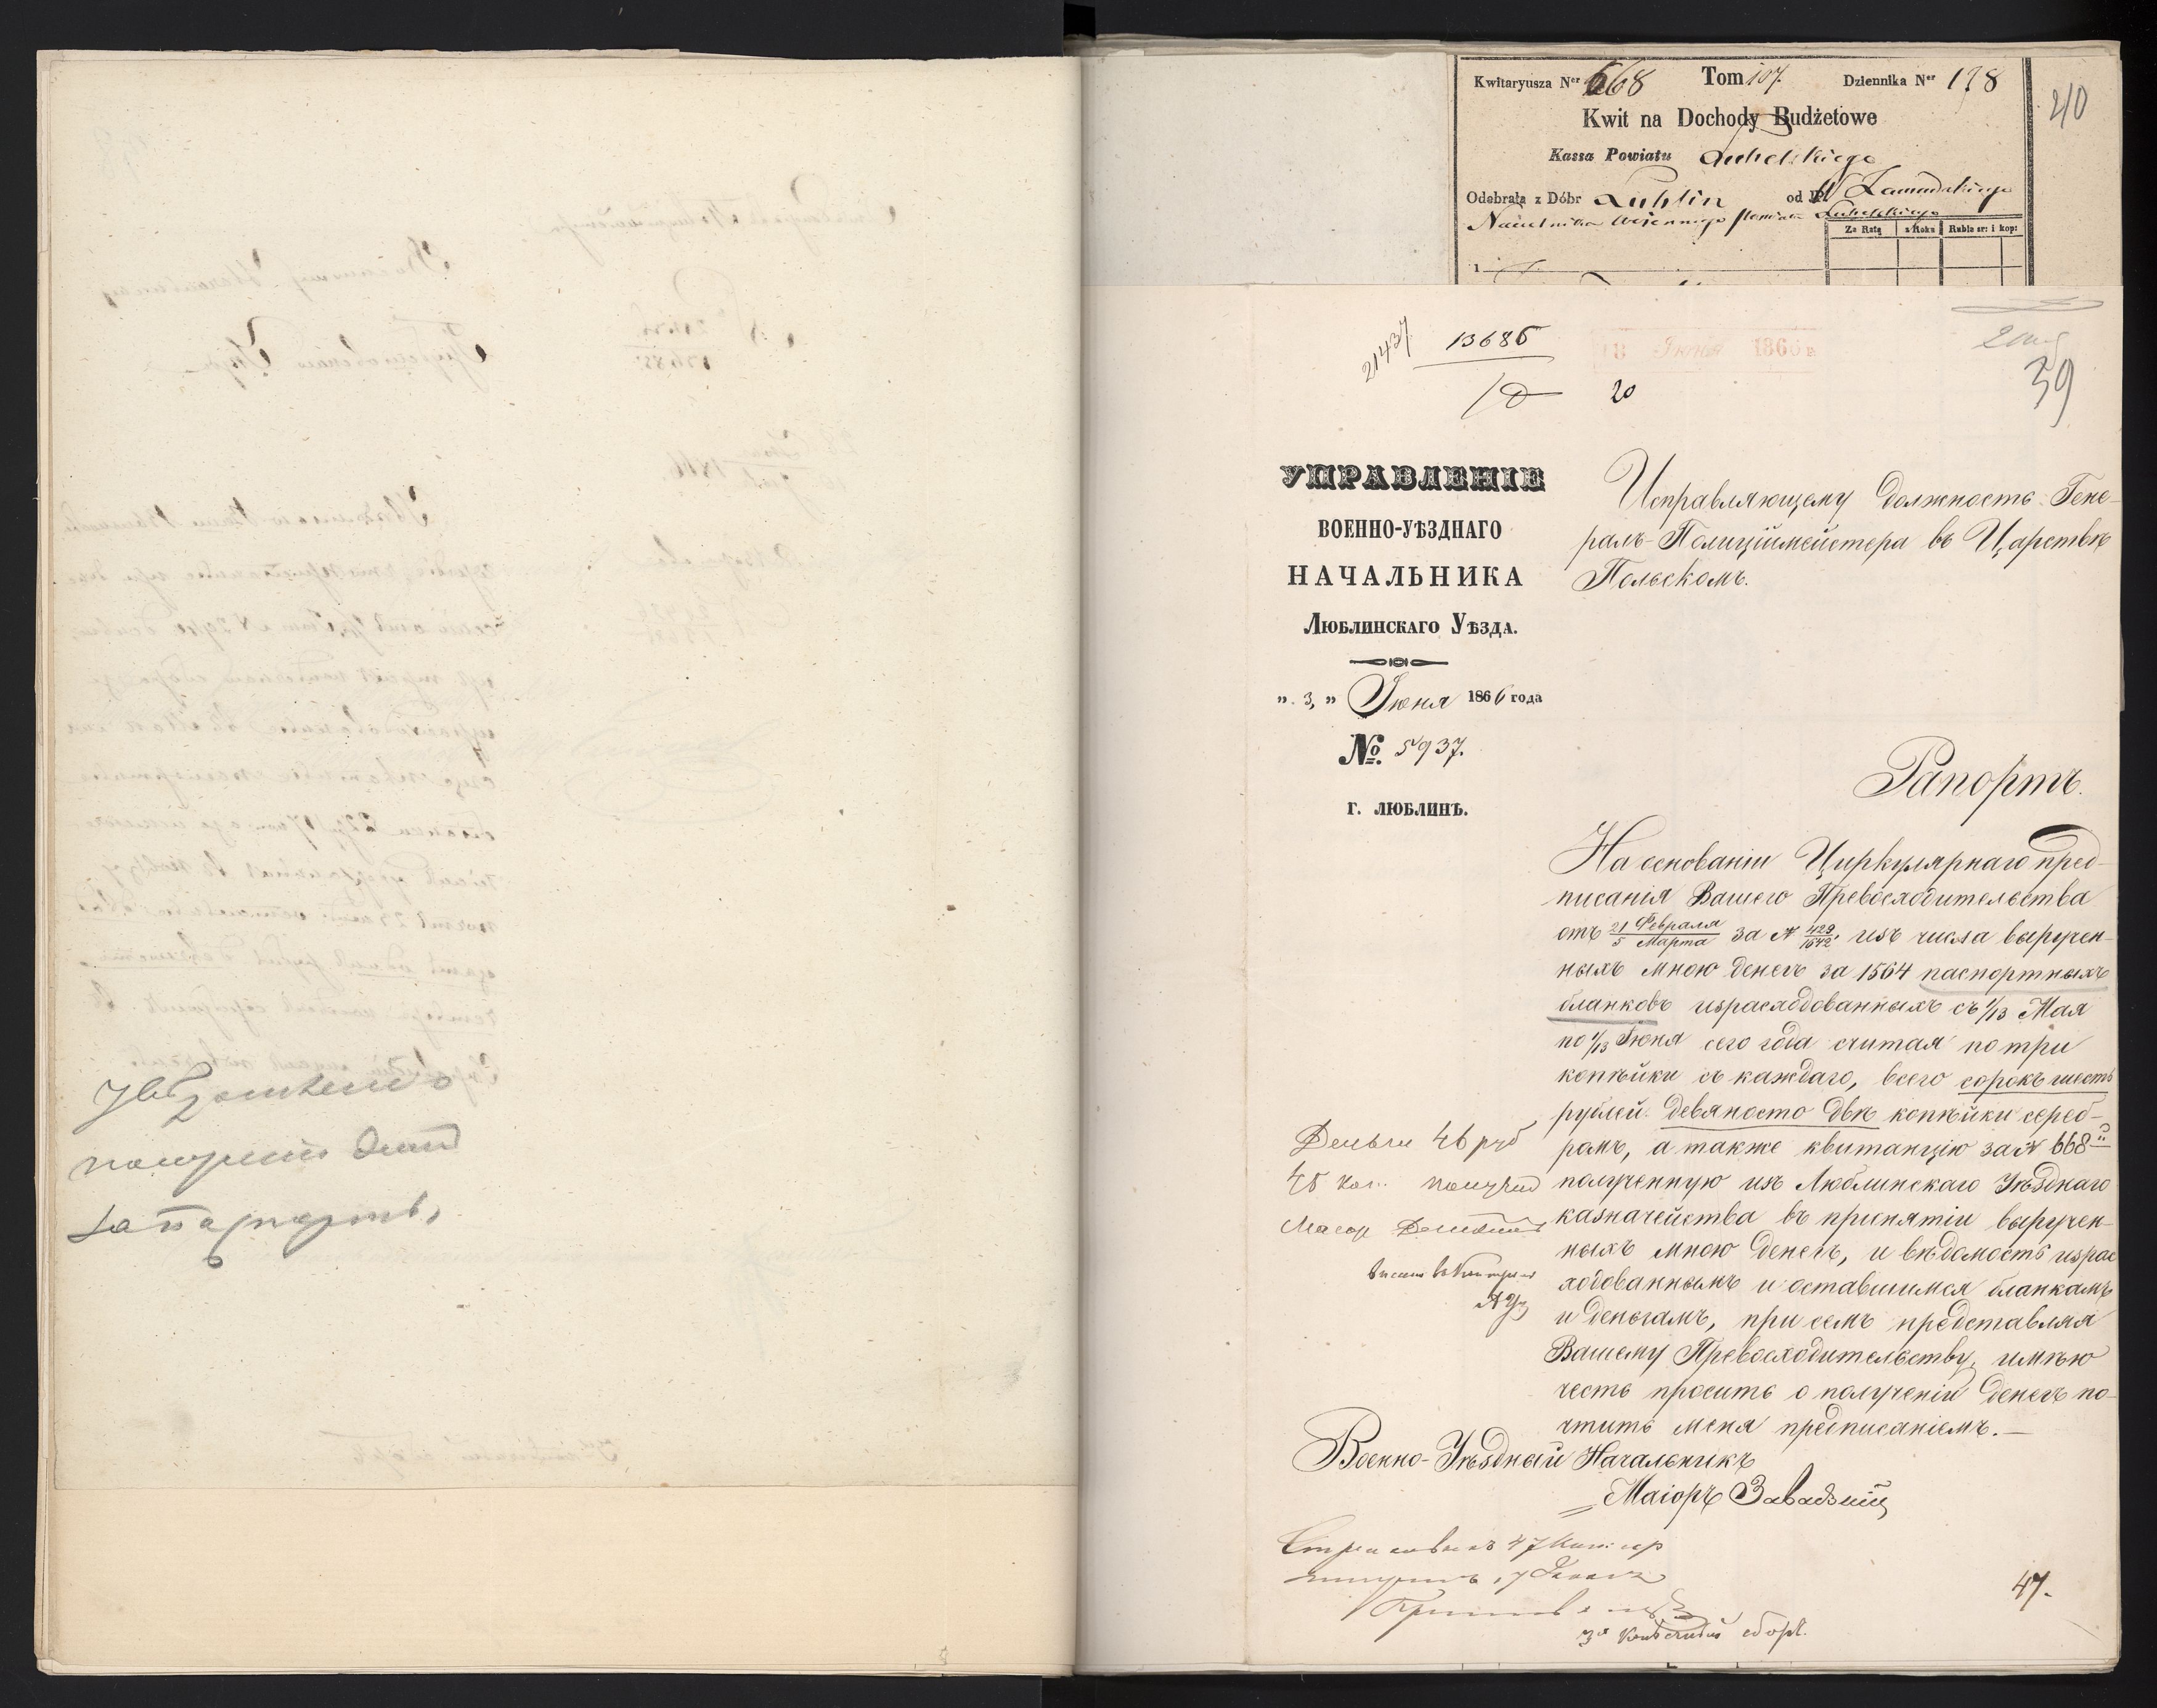 Увѣдомлено
получено денег
за паспорты
Kwitaryusza Nʳᵒ 668 Tom 107. Dziennika Nʳᵒ 178
40
Kwit na Dochody Budżetowe
Kassa Powiatu Lubelskiego
Odebrała z Dóbr Lublin od W
Naczelnika Wojennego Powiatu Lubelskiego
Za Ratę z Roku Rubla sr: i kop:
1
21437
13685
18 Іюня 1866 г.
20
39
УПРАВЛЕНІЕ
ВОЕННО-УѢЗДНАГО
НАЧАЛЬНИКА
ЛЮБЛИНСКАГО УѢЗДА.
„ 3 „ Іюня 1866 года
№ 5937.
Г. ЛЮБЛИНЪ.
Исправляющему должность Гене-
ралъ-Полиціймейстера въ Царствѣ
Польскомъ.
Рапортъ.
На основаніи Циркулярнаго пред-
писанія Вашего Превосходительства
отъ 21 Февраля / 5 Марта за № 429/1642, изъ числа выручен-
ныхъ мною денегъ за 1564 паспортныхъ
бланковъ израсходованныхъ съ 1/13 Мая
по 1/13 Іюня сего года считая по три
копѣйки съ каждаго, всего сорокъ шесть
рублей девяносто двѣ копѣйки сереб-
ромъ, а также квитанцію за № 668й
полученную изъ Люблинскаго Уѣзднаго
казначейства въ принятіи выручен-
ныхъ мною денегъ, и вѣдомость израс
ходованнымъ и оставшимся бланкамъ
и деньгамъ, при семъ представляя
Вашему Превосходительству, имѣю
честь просить о полученіи денегъ по-
чтить меня предписаніемъ.—
Деньги 46 руб
45 коп. получил
Маіоръ
Военно-Уѣздный Начальникъ
Маіоръ Завадскій
47.